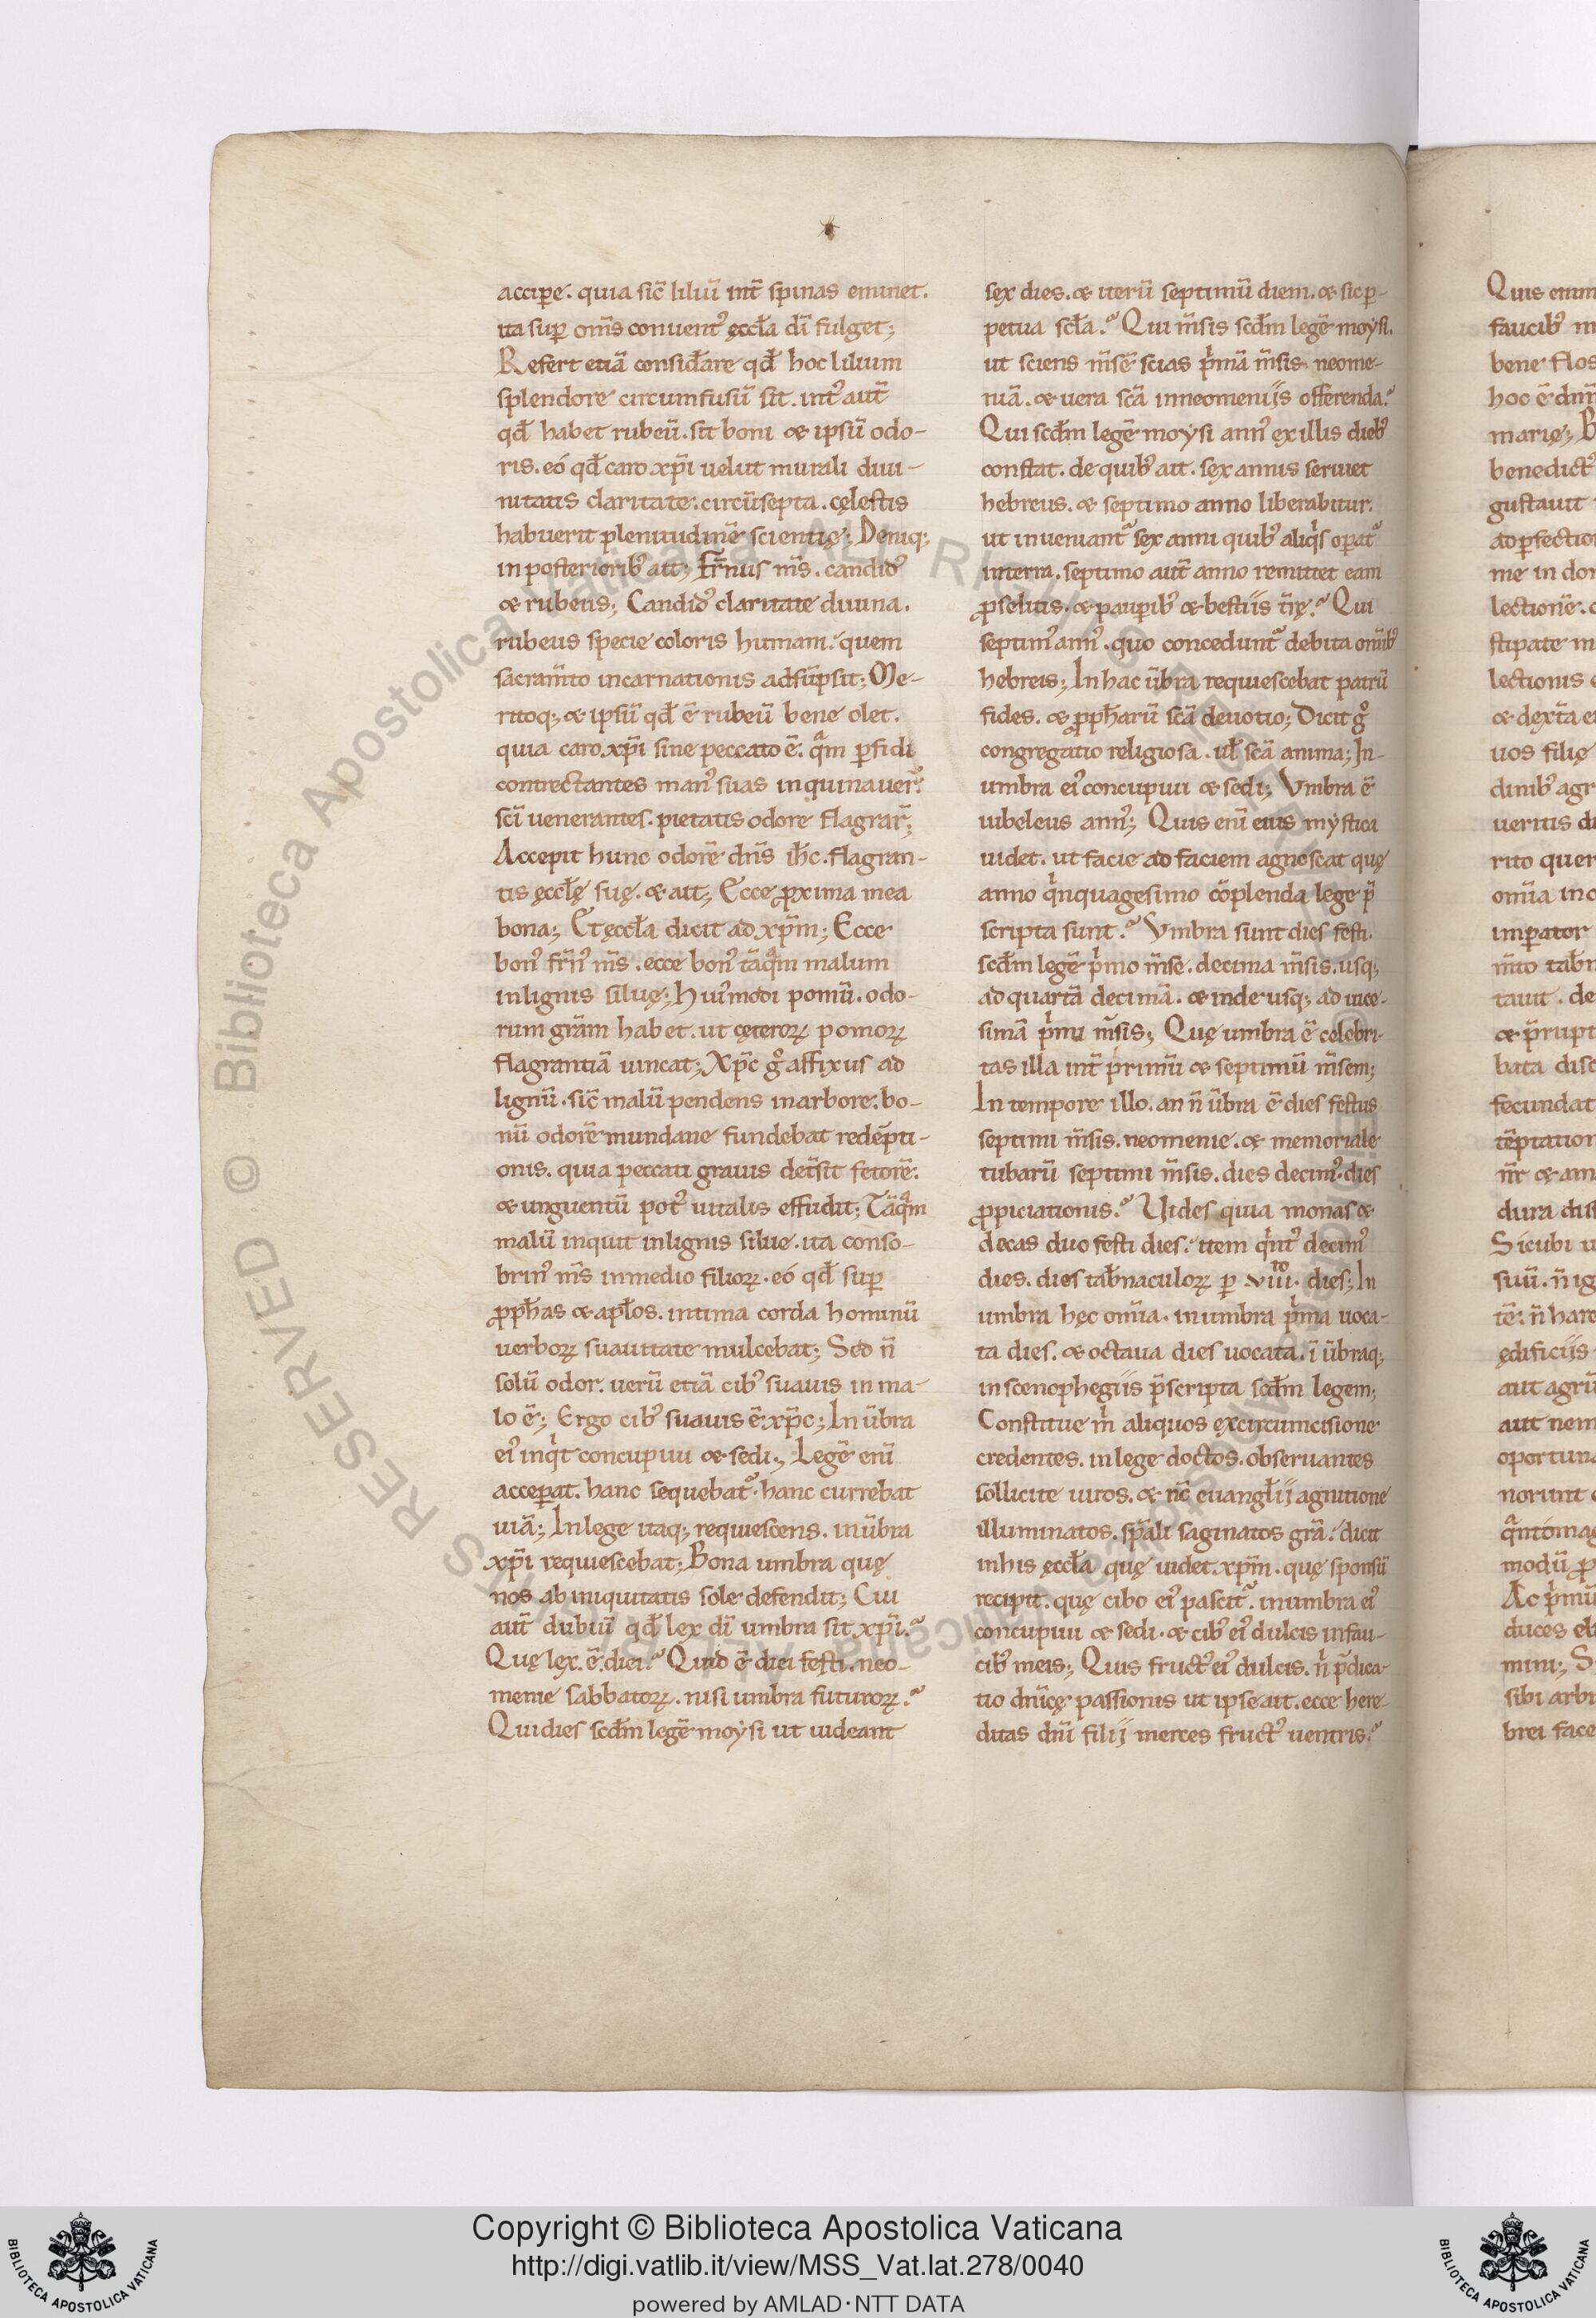 accipe. quia sic̄ liliū int̄ spinas eminet.
ita sup̱ om̄s conuent᾽ ęccl̄a dī fulget;
Refert etiā consid̄are qd̄ hoc lilium
splendore circumfusū sit. int᾽ aut̄
qd̄ habet rubeū. sit boni & ipsū odo-
ris. eó qd̄ caro xp̄i uelut murali diui-
nitatis claritate. circūsepta. cęlestis
habuerit plenitudinē scientię; Deniq;
in posteriorib᾽ ait; Fr̄nus m̄s. candid᾽
& rubeus; Candid᾽ claritate diuina.
rubeus specie coloris humani. quem
sacram̄to incarnationis adsūpsit; Me-
ritoq; & ipsū qd̄ ē rubeū bene olet.
quia caro xp̄i sine peccato ē. qͣm p̱fidi
contrectantes man᾽ suas inquinauer̄.
sc̄i uenerantes. pietatis odore flagrar̄;
Accepit hunc odorē dn̄s ih̄c. flagran-
tis ęccl̄ę suę. & ait; Ecce ꝓxima mea
bona; Et ęccl̄a dicit ad xp̄m; Ecce
bon᾽ fr̄n᾽ m̄s. ecce bon᾽ tāqͣm malum
in lignis siluę; Hui᾽modi pomū. odo-
rum grām habet. ut cęteroꝝ pomoꝝ
flagrantiā uincat; Xp̄c gͦ affixus ad
lignū. sic̄ malū pendens in arbore. bo-
nū odorē mundane fundebat redēpti-
onis. quia peccati grauis det̄sit fetorē.
& unguentū pot᾽ uitalis effudit; Tāqͣm
malū inquit in lignis silue. ita conso-
brin᾽ m̄s in medio filioꝝ. eó qd̄ sup̱
ꝓph̄as & apl̄os. intima corda hominū
uerboꝝ suauitate mulcebat; Sed n̄
solū odor. uerū etiā cib᾽ suauis in ma-
lo ē; Ergo cib᾽ suauis ē xp̄c; In ūbra
ei᾽ inqͥt concupiui & sedi; Legē enī
accepat. hanc sequebat᾽. hanc currebat
uiā; In lege itaq; requiescens. in ūbra
xp̄i requiescebat; Bona umbra quę
nos ab iniquitatis sole defendit; Cui
aut̄ dubiū qd̄ lex dī umbra sit xp̄i?
Quę lex. ē. diei? Quid ē diei festi. neo-
menie sabbatoꝝ. nisi umbra futuroꝝ?
Qui dies scd̄m legē moẏsi ut uideant
sex dies. & iterū septimū diem. & sic p̱-
petua scl̄a? Qui m̄sis scd̄m legē moẏsi.
ut sciens m̄sē scias pͥmā m̄sis neome-
niā. & uera scā in neomeniis offerenda?
Qui scd̄m legē moẏsi ann᾽ ex illis dieb᾽
constat. de quib᾽ ait. sex annis seruiet
hebreus. & septimo anno liberabitur.
ut inueniant᾽ sex anni quib᾽ aliqͥs op̱at᾽
in terra. septimo aut̄ anno remittet eam
ꝓselitis. & paup̱ib᾽ & bestiis t̄rę? Qui
septim᾽ ann᾽. quo concedunt᾽ debita omīb᾽
hebreis; In hac ūbra requiescebat patrū
fides. & ꝓph̄arū scā deuotio; Dicit gͦ
congregatio religiosa. ul̄ scā anima; In-
umbra ei᾽ concupiui & sedi; Vmbra ē
iubeleus ann᾽; Quis enī eius mẏstica
uidet. ut facie ad faciem agnoscat quę
anno qͥnquagesimo cōplenda lege p̄
scripta sunt? Vmbra sunt dies festi.
scd̄m legē pͥmo m̄se. decima m̄sis. usq;
ad quartā decimā. & inde usq; ad uice-
simā pͥmi m̄sis; Quę umbra ē celebri-
tas illa int̄ primū & septimū m̄sem;
In tempore illo. an n̄ ūbra ē dies festus
septimi m̄sis. neomenie. & memoriale
tubarū septimi m̄sis. dies decim᾽. dies
ꝓpiciationis? Vides quia monas &
decas duo festi dies. item qͥnt᾽ decim᾽
dies. dies tab̄naculoꝝ p̱ viii.ͭͦ dies; In
umbra hęc omīa. in umbra pͥma uoca-
ta dies. & octaua dies uocata. ī ūbraq;
in scenophegiis p̄scripta scd̄m legem;
Constitue mͥ aliquos ex circumcisione
credentes. in lege doctos. obseruantes
sollicite uiros. & nc̄ euangl̄ii agnitione
illuminatos. sp̄ali saginatos grā. dicit
in his ęccl̄a quę uidet xp̄m. quę sponsū
recipit. quę cibo ei᾽ pascit᾽. in umbra ei᾽
concupiui & sedi. & cib᾽ ei᾽ dulcis in fau-
cib᾽ meis; Quis fruct᾽ ei᾽ dulcis. nͥ p̄dica-
tio dn̄icę passionis ut ipse ait. ecce here-
ditas dn̄i filii merces fruct᾽ uentris?
Quis enim
faucib᾽
bene flos
hoc ē dn̄
marię;
benedict᾽
gustauit
ad p̱fectio
me in do
lectionē.
stipate
lectionis
& dext̄a
uos filię
dinib᾽ agr
uerius
rito quer
omīa
imp̱ator
m̄to tab̄n
tauit. de
& p̄rupt
bata disc
fecundat
tēptation
nr̄ & am
dura dis
Sicubi
suū. n̄ ig
tē. n̄ hare
ędificiis
aut agrū
aut nem
oportuna
norunt
qͣntómag
modū ꝓ
Ac pͥmū
duces
mini; S
sibi arbi
brei face
Biblioteca Apostolica Vaticana ALL RIGHTS RESERVED ©
Copyright © Biblioteca Apostolica Vaticana
http://digi.vatlib.it/view/MSS_Vat.lat.278/0040
powered by AMLAD·NTT DATA
BIBLIOTECA APOSTOLICA VATICANA
BIBLIOTECA APOSTOLICA VATICANA